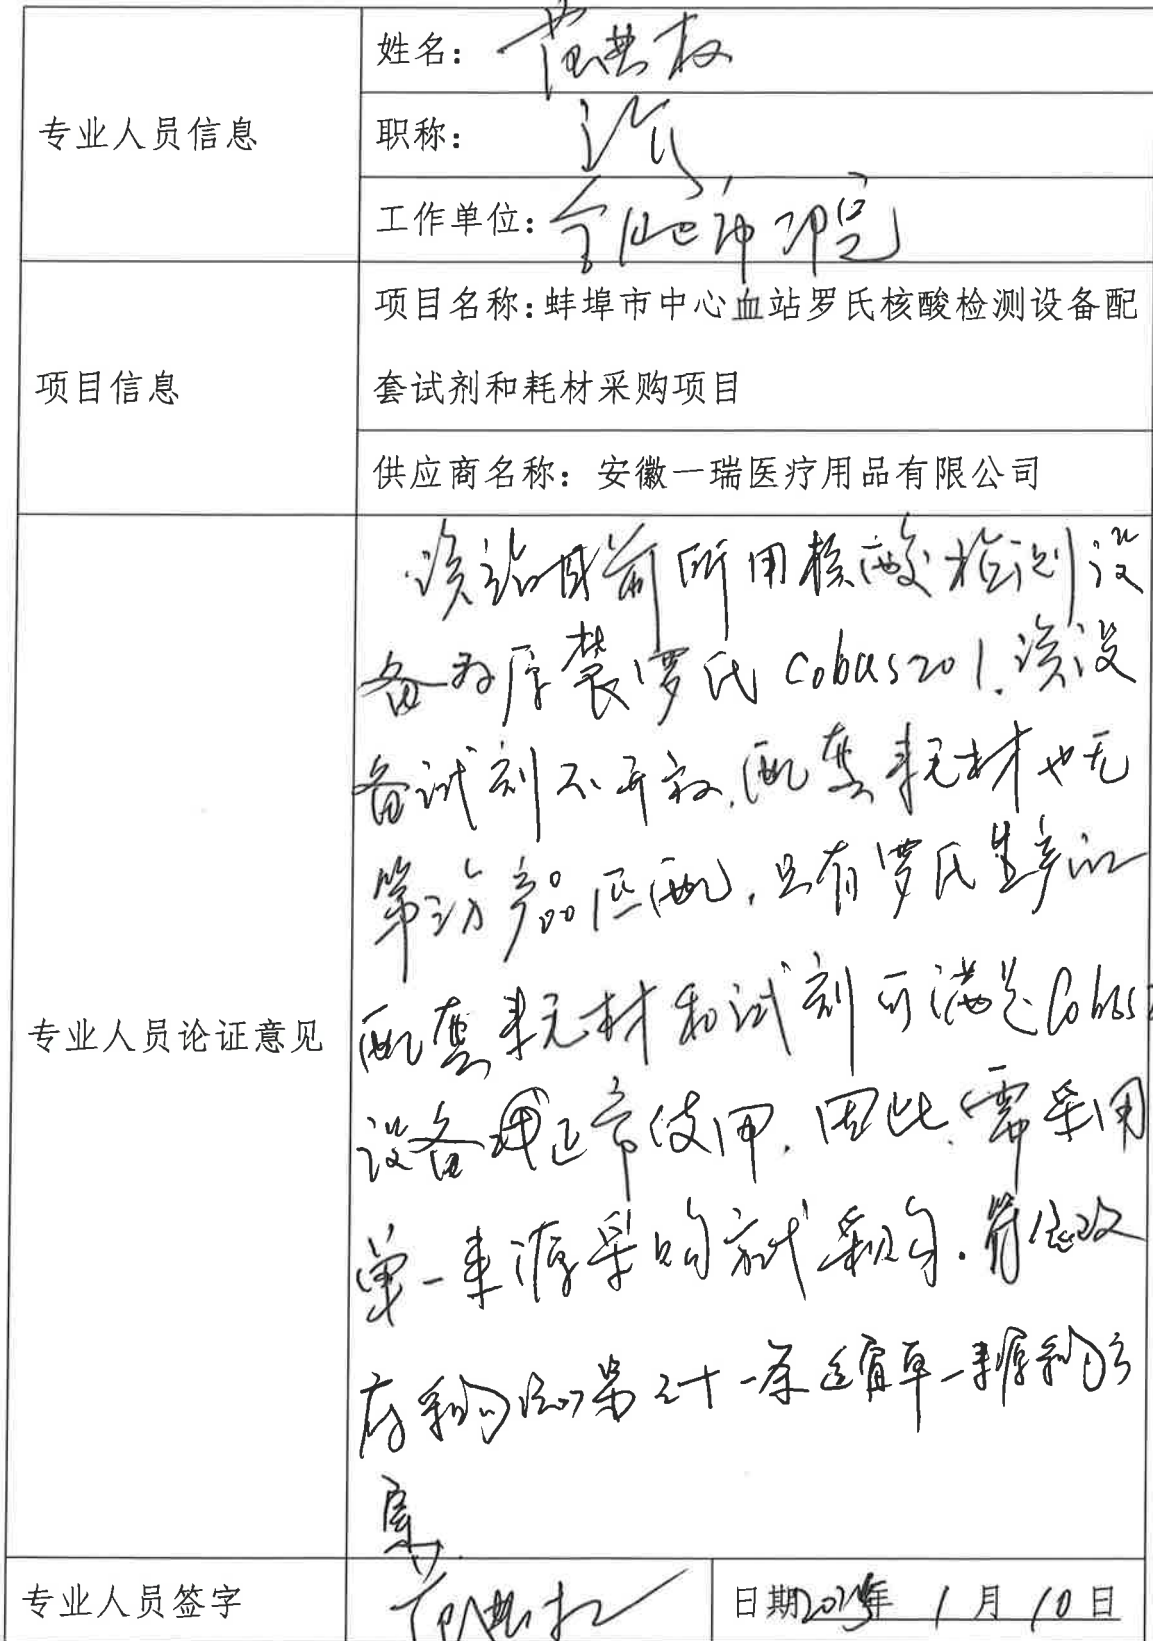 专业人员信息
姓名：范典权
职称：
工作单位：
项目信息
项目名称：蚌埠市中心血站罗氏核酸检测设备配
套试剂和耗材采购项目
供应商名称：安徽一瑞医疗用品有限公司
专业人员论证意见
该站目前所用核酸检测设
备为原装罗氏Cobas201.该设
备试剂不开放.配套耗材也无
第三方产品匹配.只有罗氏生产的
配套耗材和试剂可满足Cobas
设备正常使用.因此.需采用
单一来源采购方式采购.符合政
府采购法第三十一条适宜单一来源采购方
专业人员签字
日期 年 1 月 10 日